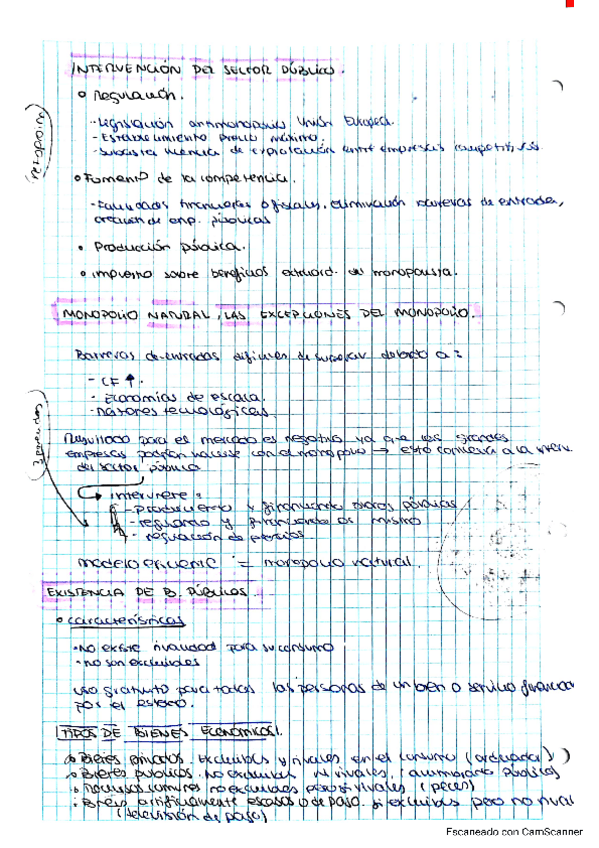 INTERVENCIÓN DEL SECTOR PÚBLICO.
Regulación.
- Legislación antimonopolio Unión Europea.
- Establecimiento precio máximo.
- Subasta licencia de explotación entre empresas competitivas
Fomento de la competencia.
- Facilidades financieras oficiales, eliminación barreras de entrada,
creación de emp. públicas
Producción pública.
impuesto sobre beneficios extraord. del monopolista.
MONOPOLIO NATURAL, LAS EXCEPCIONES DEL MONOPOLIO.
Barreras de entradas difíciles de superar debido a:
- CF ↑.
- Economías de escala.
- Factores tecnológicas
Resultado para el mercado es negativo ya que las grandes
empresas podrían hacerse con el monopolio → esto conlleva a la interv.
del sector público
interviene:
- produciendo y financiando públicas
- regulando y financiando mismo
- regulación de precios
modelo eficiente = monopolio natural.
EXISTENCIA DE B. PÚBLICOS.
características
- No existe rivalidad para su consumo
- no son excluibles
uso gratuito para todas las personas de un bien o servicio financiado
por el estado.
TIPOS DE BIENES ECONÓMICOS.
Bienes privados. excluibles y rivales en el consumo (ordenador)
Bienes públicos. no excluibles ni rivales. (alumbrado público)
Recursos comunes no excluibles pero si rivales (peces)
Bienes artificialmente escasos o de pago. si excluibles pero no rival
(televisión de pago)
Escaneado con CamScanner